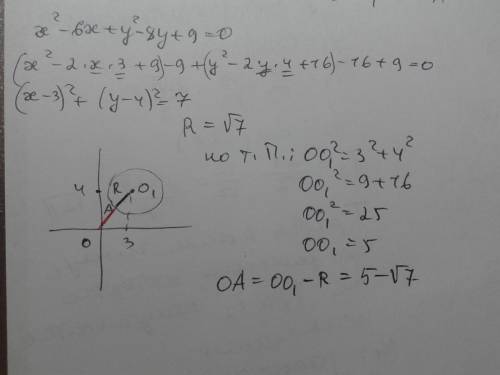 x² - 6x + y² - 8y + 9 = 0
(x² - 2·x·3 + 9) - 9 + (y² - 2y·4 + 16) - 16 + 9 = 0
(x-3)² + (y-4)² = 7
R = √7
по т. П.: OO₁² = 3² + 4²
OO₁² = 9 + 16
OO₁² = 25
OO₁ = 5
OA = OO₁ - R = 5 - √7
4 R O₁
A
O 3